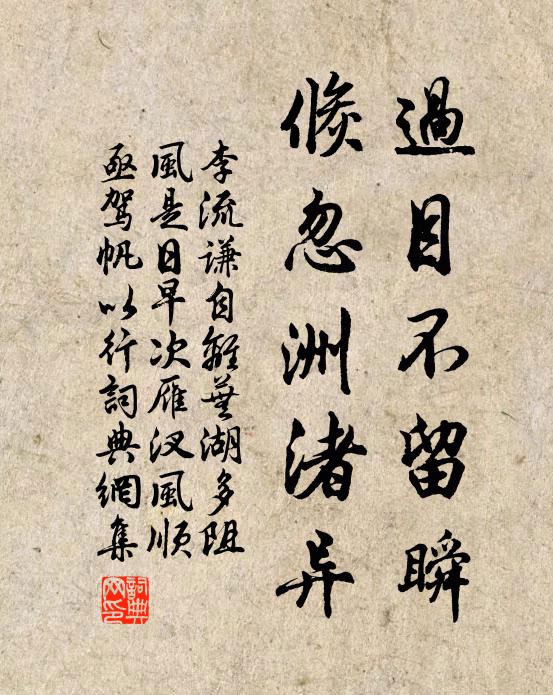 過目不留瞬
倏忽洲渚异
李流谦自離蕪湖多阻
風是日早次雁汊風順
亟驾帆以行詞典網集
詞典
网印